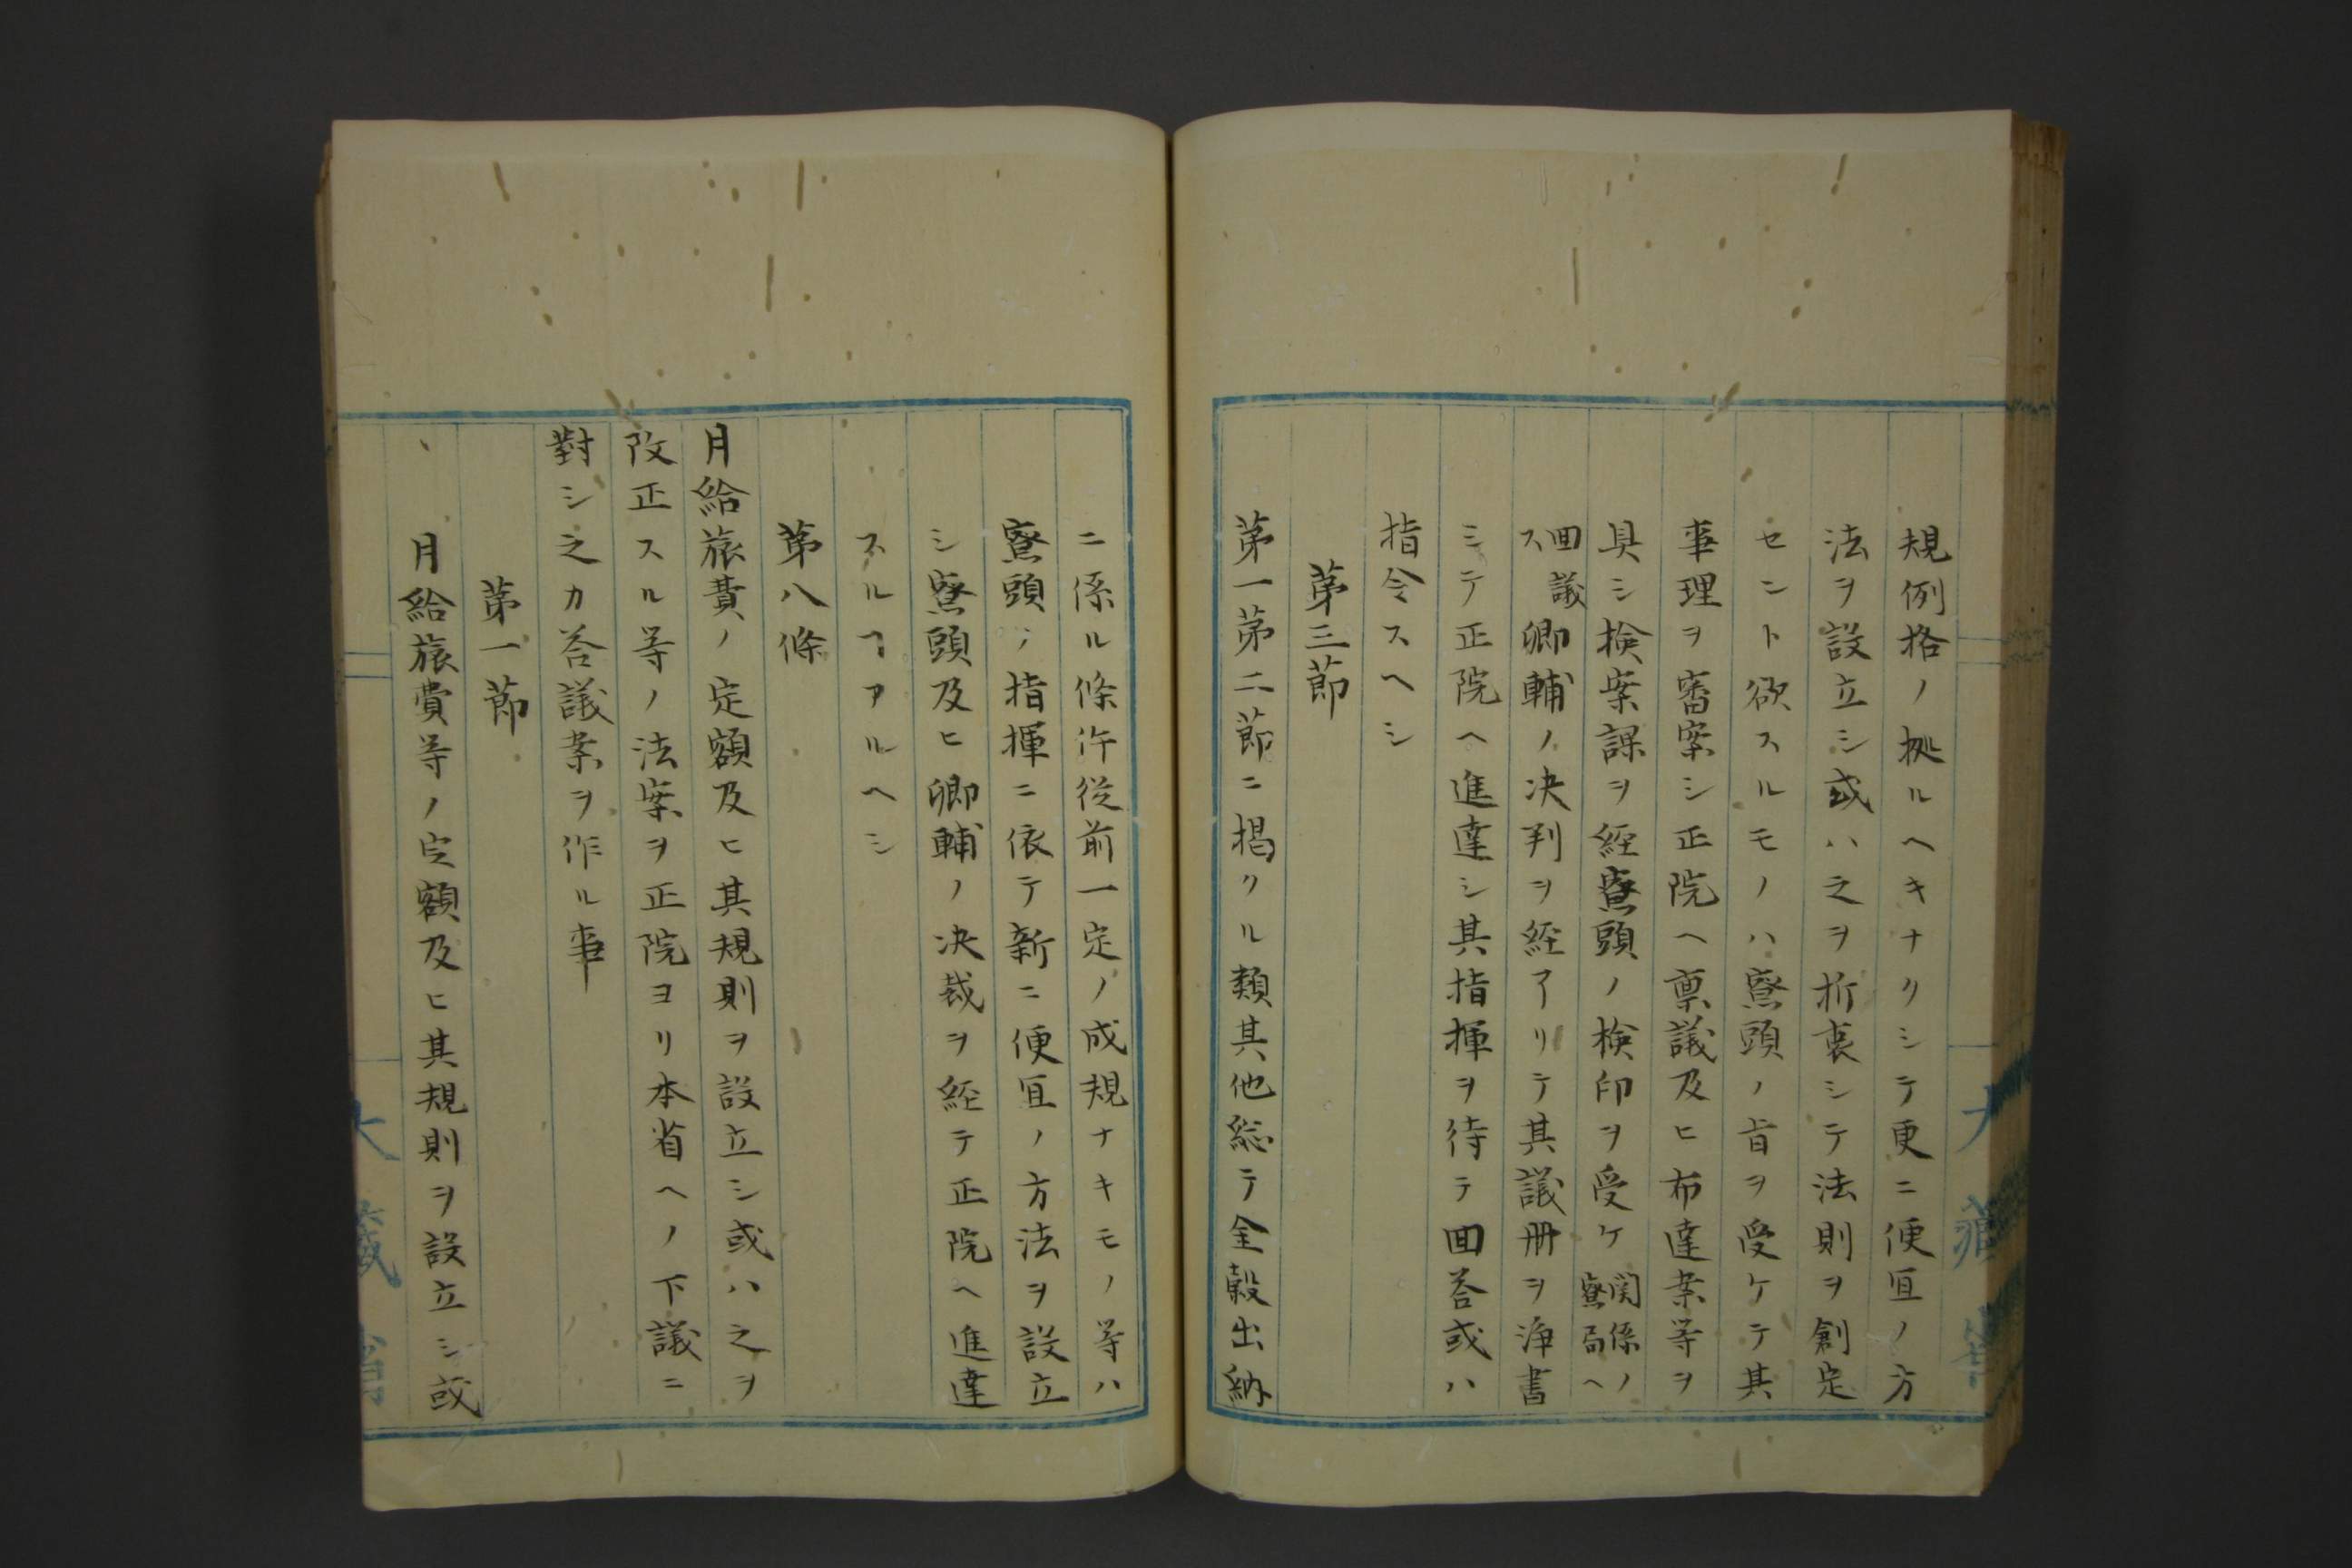 規例格ノ拠ルヘキナクシテ更ニ便宜ノ方
法ヲ設立シ或ハ之ヲ折衷シテ法則ヲ創定
セント欲スルモノハ寮頭ノ旨ヲ受ケテ其
事理ヲ審案シ正院ヘ禀議及ヒ布達案等ヲ
具シ検案課ヲ経寮頭ノ検印ヲ受ケ関係ノ寮局ヘ
回議ス卿輔ノ决判ヲ経了リテ其議冊ヲ浄書
シテ正院ヘ進達シ其指揮ヲ待テ回答或ハ
指令スヘシ
第三節
第一第二節ニ掲クル類其他総テ金穀出納
ニ係ル條件従前一定ノ成規ナキモノ等ハ
寮頭ノ指揮ニ依テ新ニ便宜ノ方法ヲ設立
シ寮頭及ヒ卿輔ノ决裁ヲ経テ正院ヘ進達
スルヿアルヘシ
第八條
月給旅費ノ定額及ヒ其規則ヲ設立シ或ハ之ヲ
改正スル等ノ法案ヲ正院ヨリ本省ヘノ下議ニ
對シ之カ答議案ヲ作ル事
第一節
月給旅費等ノ定額及ヒ其規則ヲ設立シ或
大藏省